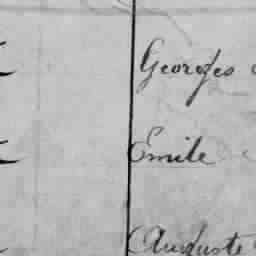 Georges
Emile
Auguste